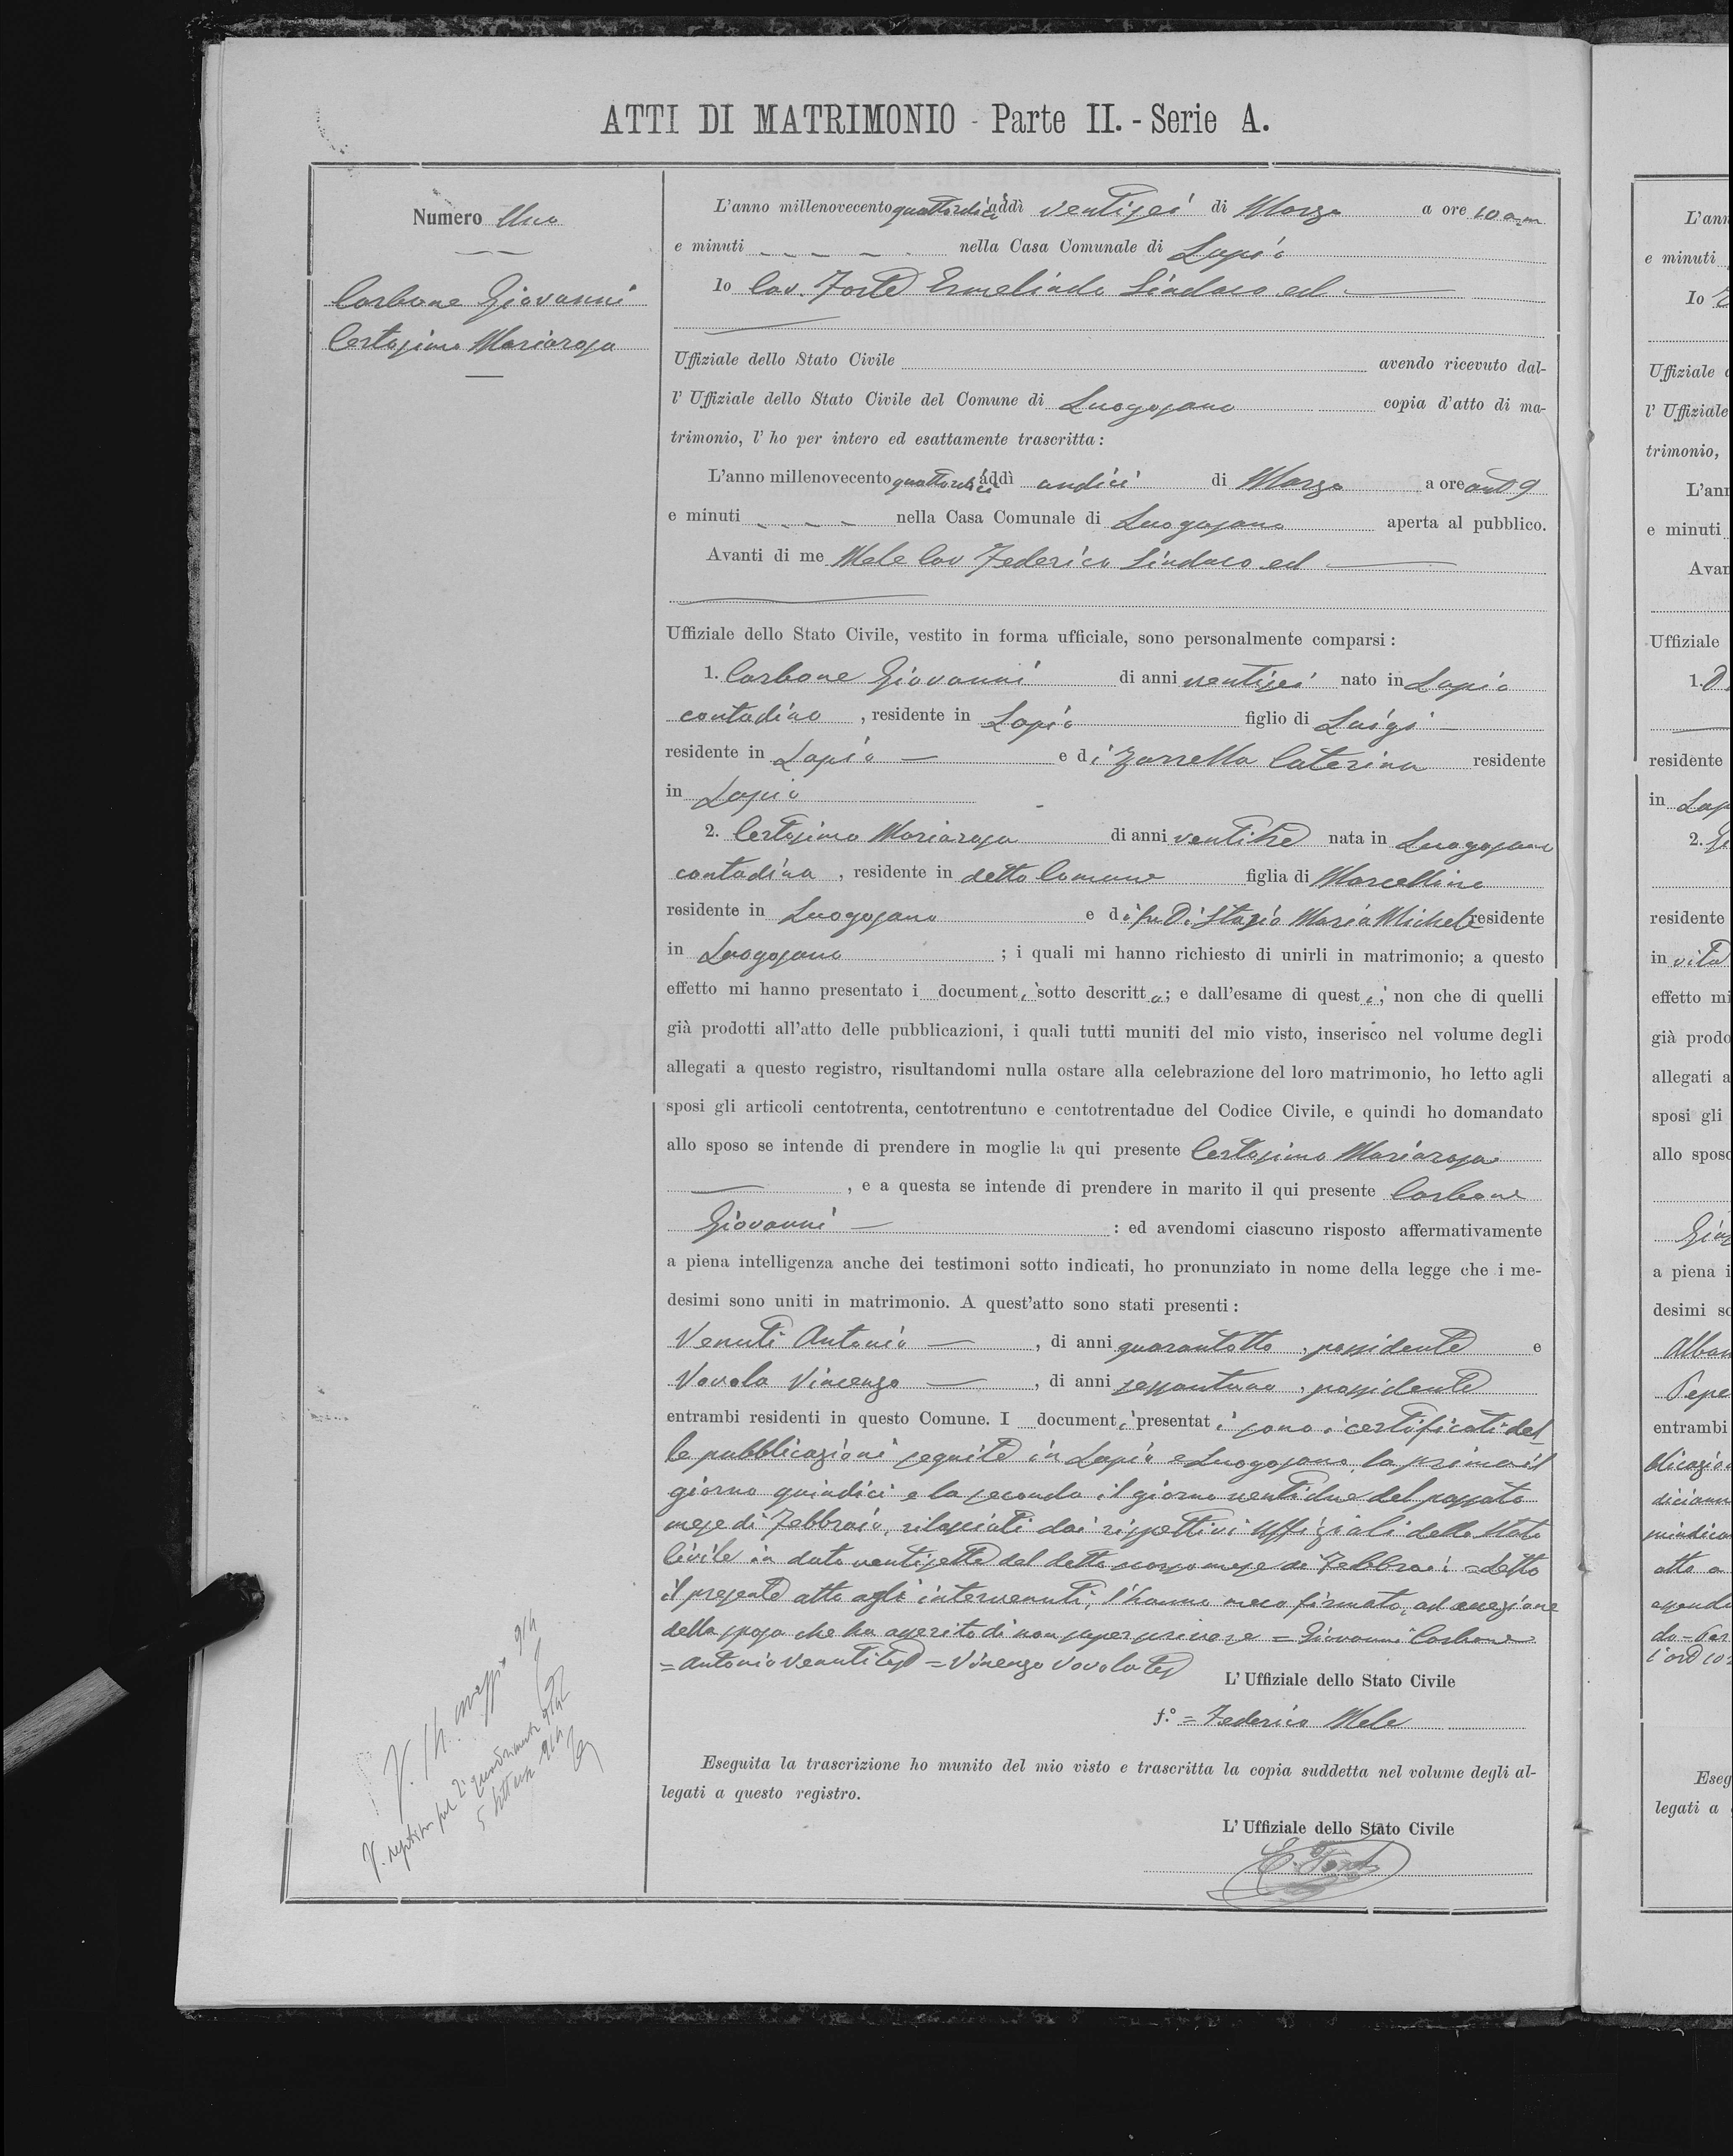 ATTI DI MATRIMONIO - Parte II. - Serie A.
Numero Uno
Carbone Giovanni
Certosimo Mariarosa
L'anno millenovecento quattordici addì ventisei di Marzo a ore 10 a.m.
e minuti - - - - nella Casa Comunale di Lapio
Io Cav. Forte Ermelindo Sindaco ed
Uffiziale dello Stato Civile avendo ricevuto dal-
l' Uffiziale dello Stato Civile del Comune di Luogosano copia d'atto di ma-
trimonio, l' ho per intero ed esattamente trascritta:
L'anno millenovecento quattordici addì undici di Marzo a ore ant 9
e minuti - - - - nella Casa Comunale di Luogosano aperta al pubblico.
Avanti di me Mele Cav Federico Sindaco ed
Uffiziale dello Stato Civile, vestito in forma ufficiale, sono personalmente comparsi:
1. Carbone Giovanni di anni ventisei nato in Lapio
contadino, residente in Lapio figlio di Luigi
residente in Lapio e di Zarrella Caterina residente
in Lapio
2. Certosimo Mariarosa di anni ventitre nata in Luogosano
contadina, residente in detto Comune figlia di Marcellino
residente in Luogosano e di fu Di Stasio Maria Michele residente
in Luogosano ; i quali mi hanno richiesto di unirli in matrimonio; a questo
effetto mi hanno presentato i documenti sotto descritto; e dall'esame di questi, non che di quelli
già prodotti all'atto delle pubblicazioni, i quali tutti muniti del mio visto, inserisco nel volume degli
allegati a questo registro, risultandomi nulla ostare alla celebrazione del loro matrimonio, ho letto agli
sposi gli articoli centotrenta, centotrentuno e centotrentadue del Codice Civile, e quindi ho domandato
allo sposo se intende di prendere in moglie la qui presente Certosimo Mariarosa
, e a questa se intende di prendere in marito il qui presente Carbone
Giovanni : ed avendomi ciascuno risposto affermativamente
a piena intelligenza anche dei testimoni sotto indicati, ho pronunziato in nome della legge che i me-
desimi sono uniti in matrimonio. A quest'atto sono stati presenti:
Venuti Antonio, di anni quarantotto, possidente e
Vovola Vincenzo, di anni sessantuno, possidente
entrambi residenti in questo Comune. I documenti presentati sono i certificati del-
le pubblicazioni seguite in Lapio e Luogosano, la prima il
giorno quindici e la seconda il giorno ventidue del passato
mese di Febbraio, rilasciati dai rispettivi Uffiziali dello Stato
Civile in data ventisette del detto scorso mese di Febbraio = Letto
il presente atto agli intervenuti, l'hanno meco firmato, ad eccezione
della sposa che ha asserito di non saper scrivere = Giovanni Carbone
= Antonio Venuti tes = Vincenzo Vovola tes
L' Uffiziale dello Stato Civile
f.º = Federico Mele
Eseguita la trascrizione ho munito del mio visto e trascritta la copia suddetta nel volume degli al-
legati a questo registro.
L' Uffiziale dello Stato Civile
E. Forte
V. 14 maggio 914
5 settembre 914
L'ann
e minuti
Io
Uffiziale
l' Uffiziale
trimonio,
L'ann
e minuti
Avan
Uffiziale
1.
residente
in Lap
2.
residente
in vita
effetto mi
già prodo
allegati a
sposi gli
allo sposo
a piena i
desimi so
Alban
Pepe
entrambi
blicazion
atto a
Eseg
legati a